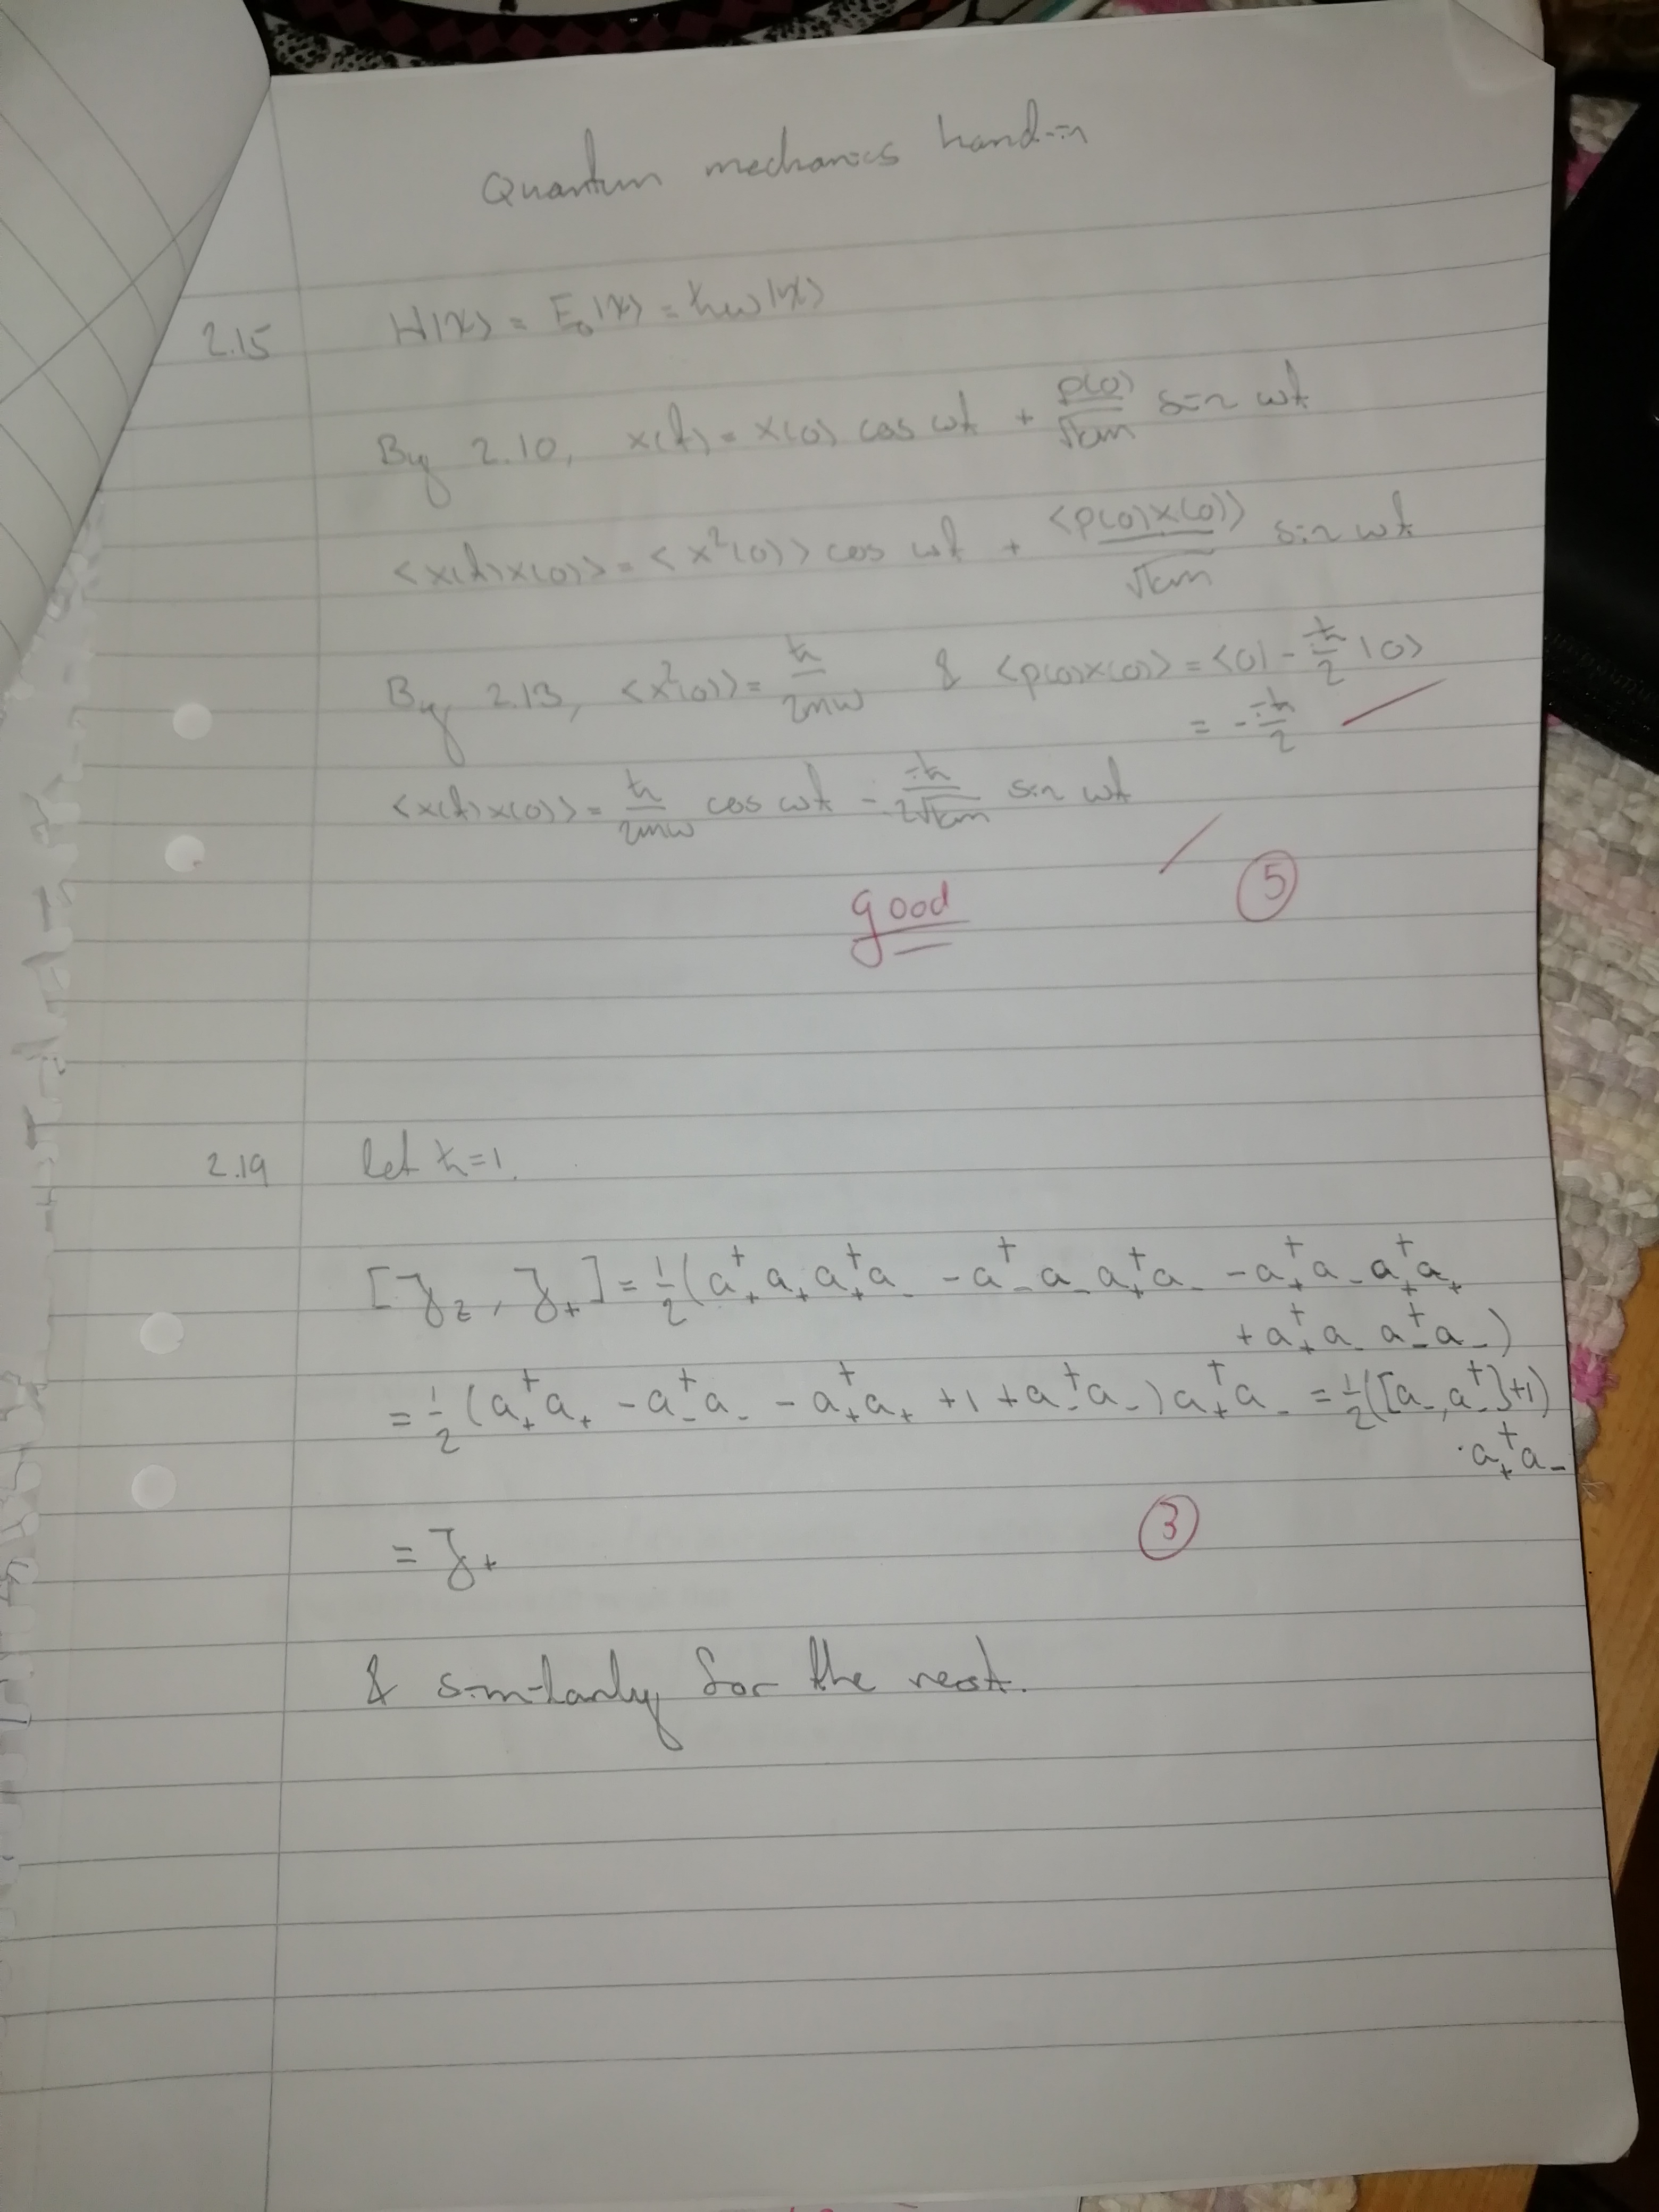 Quantum mechanics hand-in
2.15 H|x> = E₀|x> = ħω|x>
By 2.10, x(t) = x(0) cos ωt + p(0)/√km sin ωt
<x(t)x(0)> = <x²(0)> cos ωt + <p(0)x(0)>/√km sin ωt
By 2.13, <x²(0)> = ħ/2mω & <p(0)x(0)> = <0| -iħ/2 |0>
= -iħ/2
<x(t)x(0)> = ħ/2mω cos ωt - iħ/2√km sin ωt
good 5
2.19 let ħ=1.
[J_z, J_+] = ½(a₊†a₊a₊†a₋ - a₋†a₋a₊†a₋ - a₊†a₋a₊†a₊
+ a₊†a₋a₋†a₋)
= ½(a₊†a₊ - a₋†a₋ - a₊†a₊ + 1 + a₋†a₋)a₊†a₋ = ½([a₋,a₋†]+1)
·a₊†a₋
= J₊ 3
& similarly for the rest.